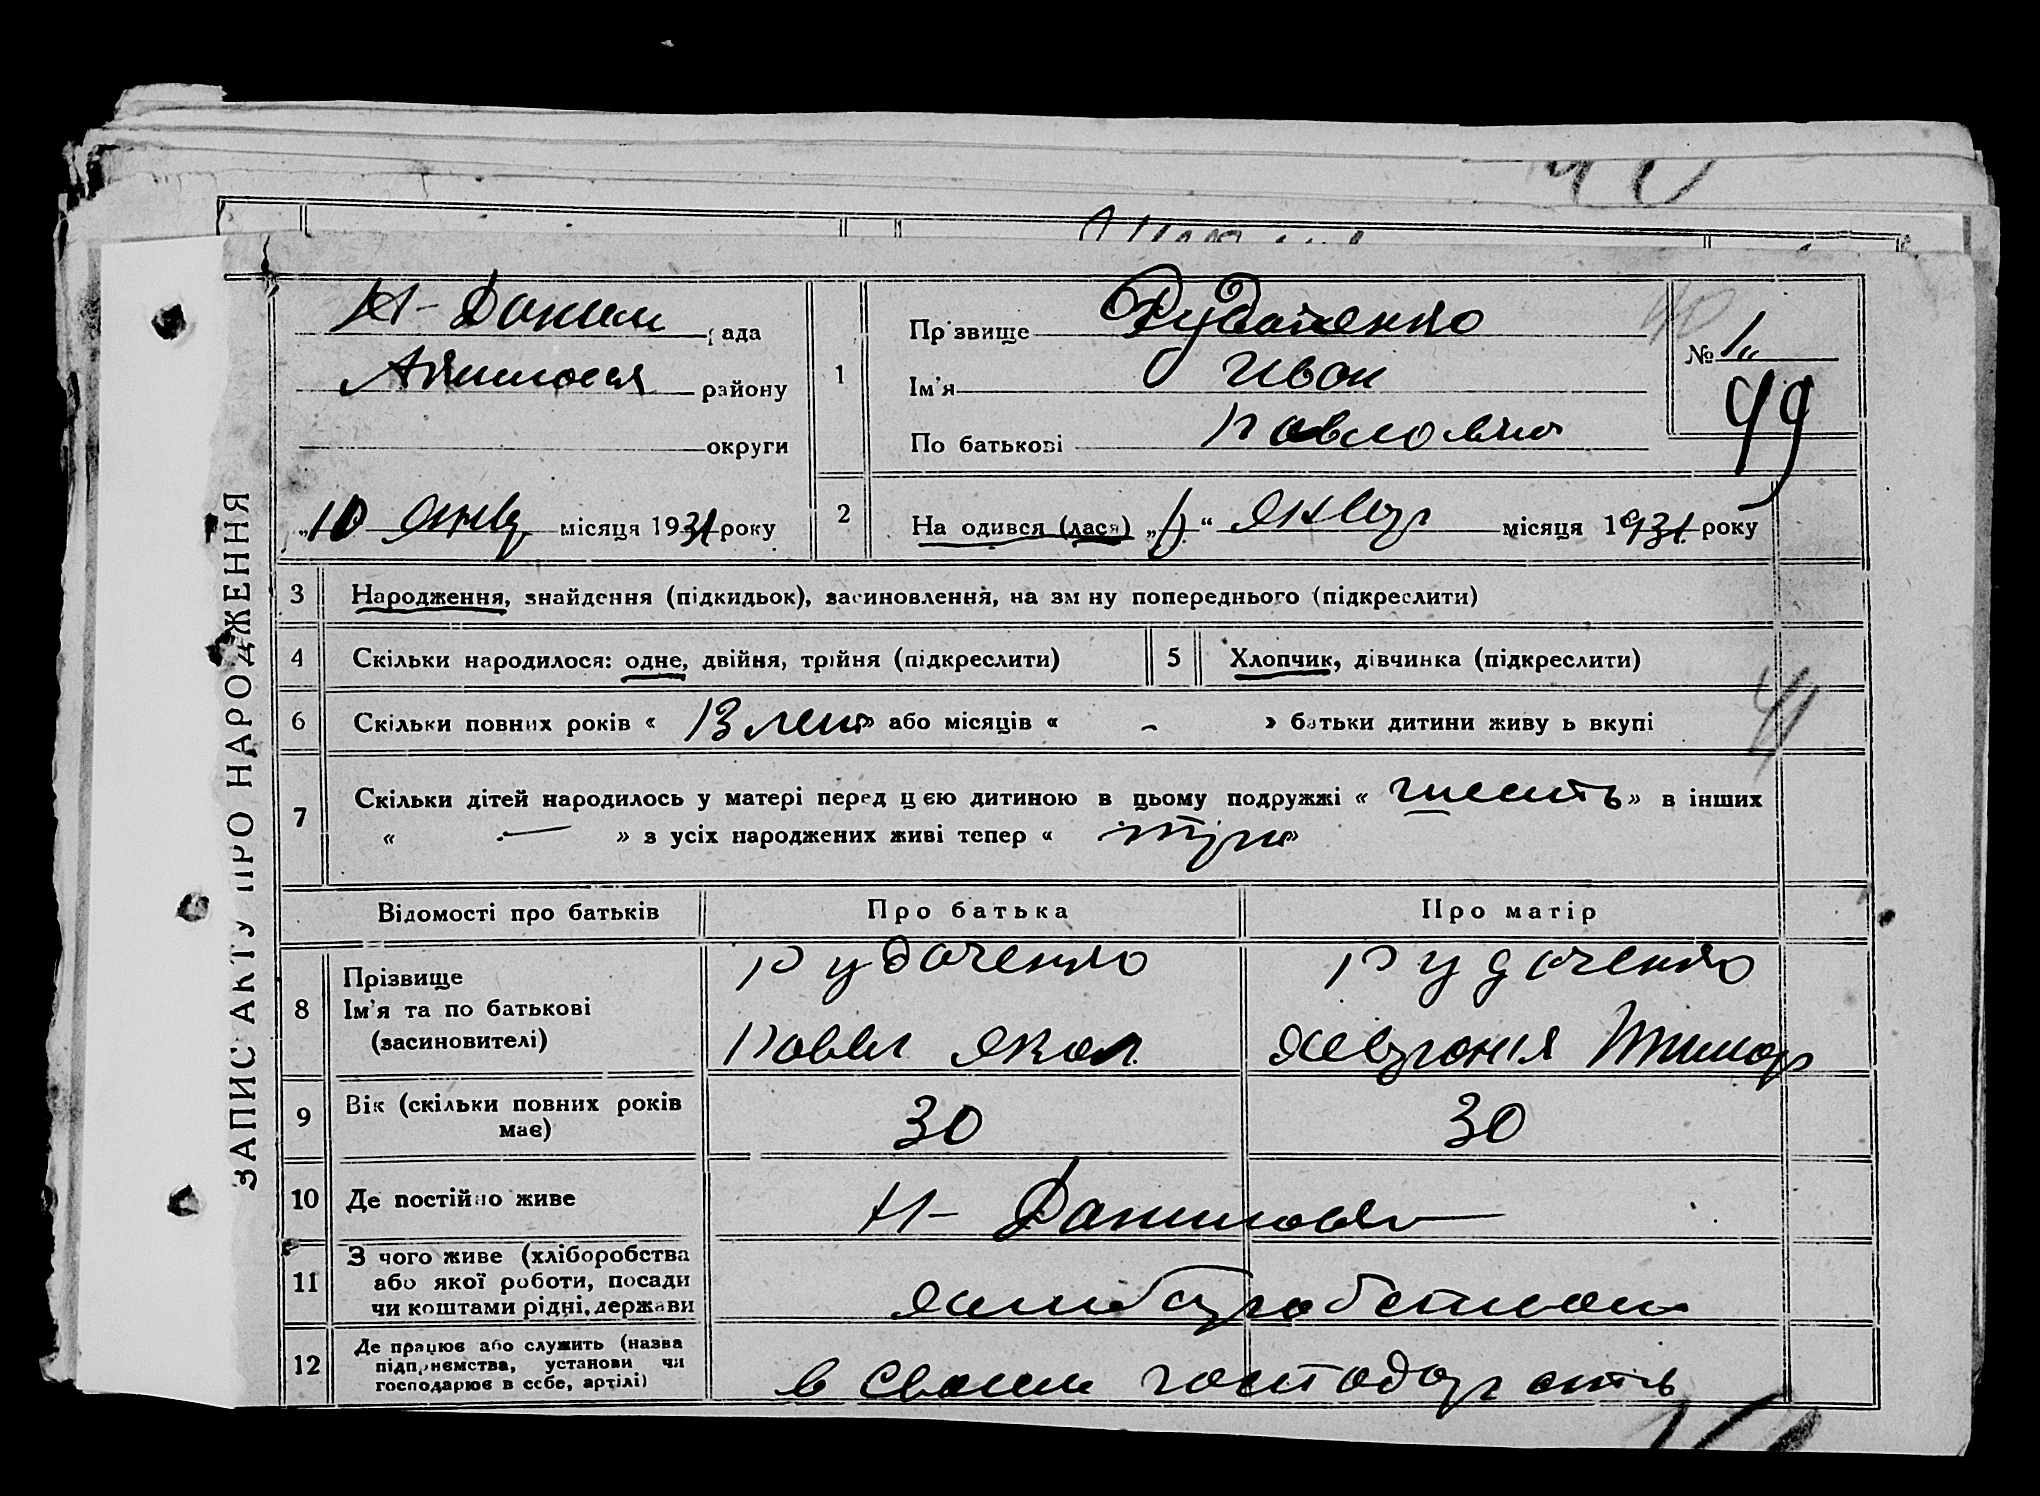 ЗАПИС АКТУ ПРО НАРОДЖЕННЯ
Н- Даним рада
району
округи
"10 янв місяця 1931 року
1
Прізвище Рудаченко
Ім'я Иван
По батькові Павлович
№ 1
49
2
На одився (лася) " " январ місяця 1931 року
3 Народження, знайдення (підкидьок), засиновлення, на зміну попереднього (підкреслити)
4 Скільки народилося: одне, двійня, трійня (підкреслити)
5 Хлопчик, дівчинка (підкреслити)
6 Скільки повних років « 13 лет » або місяців « - » батьки дитини живу ь вкупі
41
7 Скільки дітей народилось у матері перед цією дитиною в цьому подружжі « » в інших
« — » з усіх народжених живі тепер « »
Відомості про батьків Про батька Про матір
8 Прізвище
Ім'я та по батькові
(засиновителі)
Рудаченко Рудаченко
Павел Яков Тимоф
9 Вік (скільки повних років
має)
30 30
10 Де постійно живе Н- Данимовка
11 З чого живе (хліборобства
або якої роботи, посади
чи коштами рідні, держави
12 Де працює або служить (назва
підприємства, установи чи
господарює в себе, артілі)
в своем господарстві